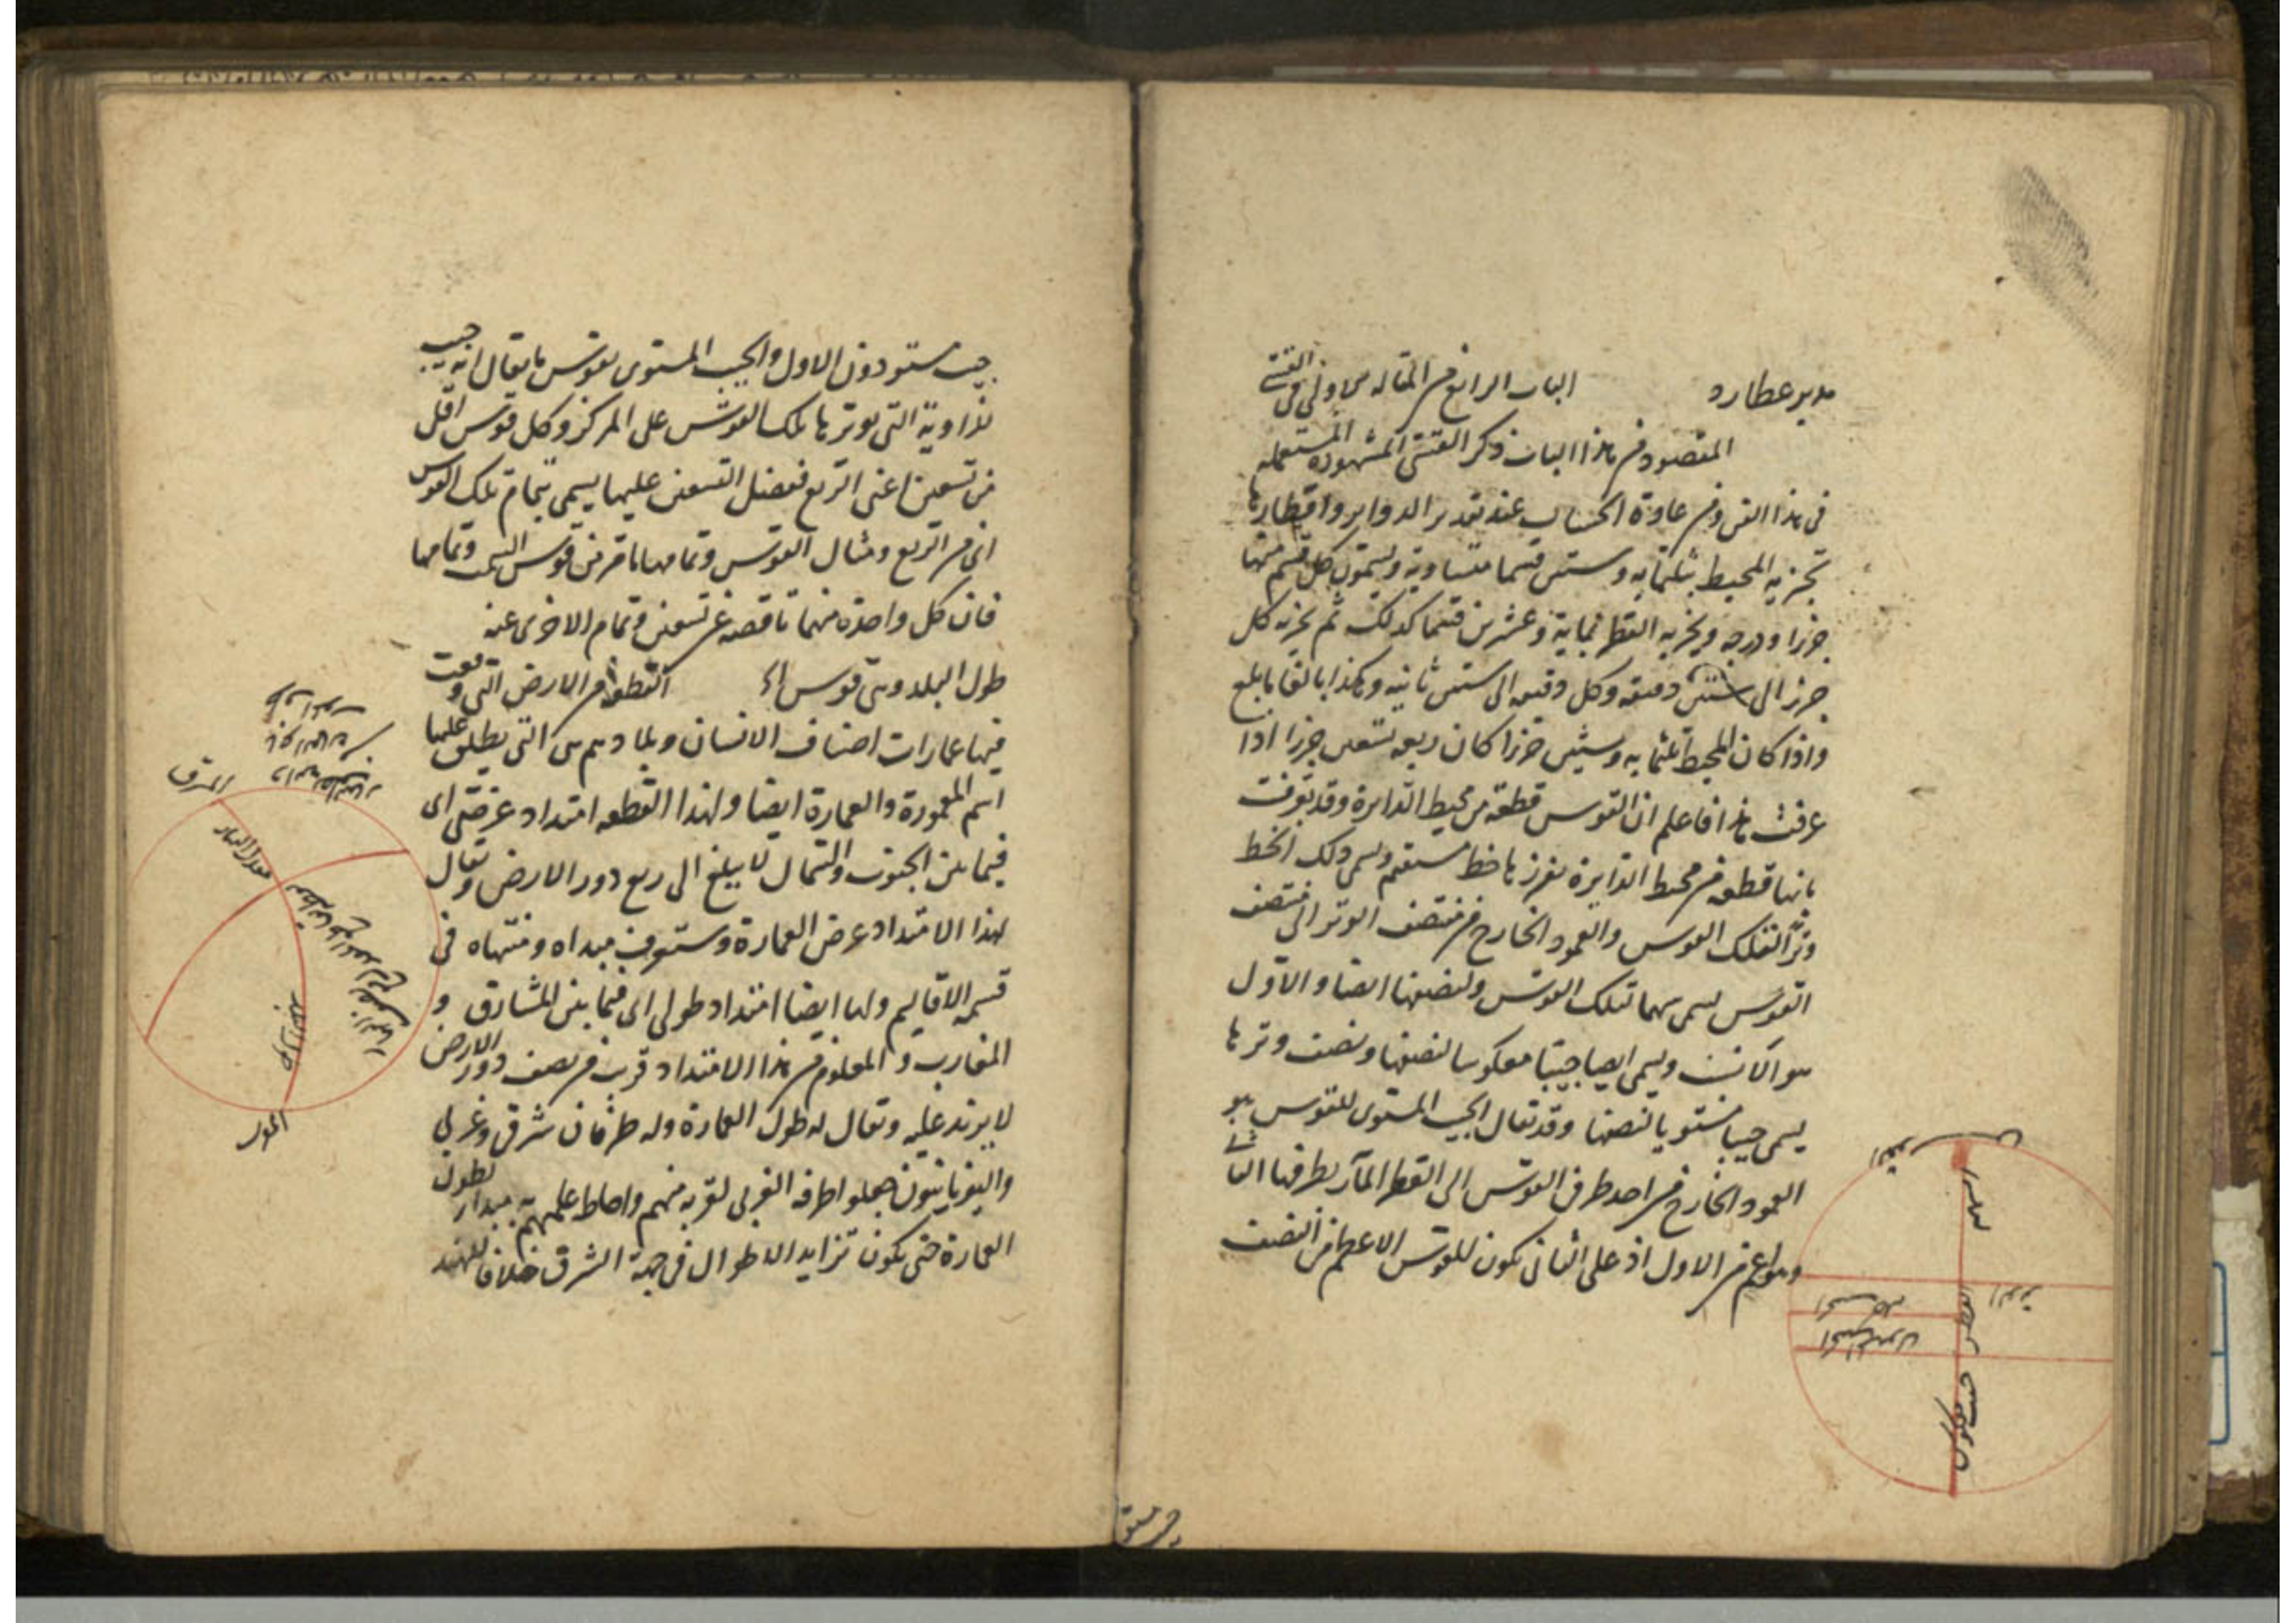 مدير عطارد الباب الرابع من المقالة الاولى في القسي
المقصود من هذا الباب ذكر القسي المشهورة المستعملة
في هذا الفن ومن عادة الحساب عند تقدير الدواير واقطارها
تجزيه المحيط بثلثمايه وستين قسما متساوية ويسمون كل قسم منها
جزءا ودرجه وتجزيه القطر بمايه وعشرين قسما كذلك ثم تجزيه كل
جزء الى ستين دقيقه وكل دقيقه الى ستين ثانيه وهكذا بالغا ما بلغ
واذا كان المحيط ثلثمايه وستين جزءا كان ربعه تسعين جزءا اذا
عرفت هذا فاعلم ان القوس قطعة من محيط الدايرة وقد تعرف
بانها قطعه من محيط الدايرة يفرزها خط مستقيم ويسمى ذلك الخط
وترا لتلك القوس والعمود الخارج من منتصف الوتر الى منتصف
القوس يسمى سهما لتلك القوس ولنصفها ايضا والاول
هو الانسب ويسمى ايضا جيبا معكوسا لنصفها ونصف وترها
يسمى جيبا مستويا لنصفها وقد يقال الجيب المستوى للقوس هو
العمود الخارج من احد طرفى القوس الى القطر المار بطرفها الثاني
وهو اعم من الاول اذ على الثانى يكون للقوس الاعظم من النصف
السهم
الوتر
القطر
جيب معكوس
جيب مستو
جيب مستو دون الاول والجيب المستوى لقوس ما يقال انه جيب
لزاوية التى يوترها تلك القوس على المركز وكل قوس اقل
من تسعين اعنى الربع ففضل التسعين عليها يسمى تمام تلك القوس
اى من الربع ومثال القوس وتمامها ما مر من قوس السمت وتمامها
فان كل واحدة منهما ناقصه عن تسعين وتمام الاخرى عنه
طول البلد وهى قوس اى القطعة من الارض التى وقعت
فيها عمارات اصناف الانسان وبلادهم هى التى يطلق عليها
اسم المعمورة والعمارة ايضا ولهذا القطعه امتداد عرضى اى
فيما بين الجنوب والشمال لا يبلغ الى ربع دور الارض ويقال
لهذا الامتداد عرض العمارة وستعرف مبداه ومنتهاه فى
قسمه الاقاليم ولها ايضا امتداد طولى اى فيما بين المشارق و
المغارب والمعلوم من هذا الامتداد قريب من نصف دور الارض
لا يزيد عليه ويقال له طول العمارة وله طرفان شرقى وغربى
واليونانيون جعلوا طرفه الغربى لقربه منهم واحاط علمهم به مبدا لطول
العمارة حتى يكون تزايد الاطوال فى جهة الشرق خلافا للهند
المشرق
معدل النهار
المغرب